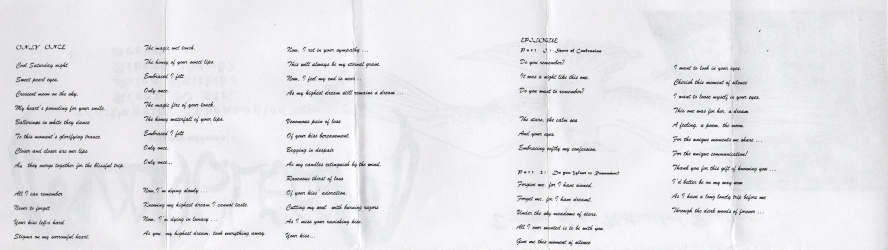 ONLY ONCE
Cool Saturday night
Sweet pearl eyes.
Crescent moon on the sky.
My heart's pounding for your smile.
Ballerinas in white they dance
To this moment's glorifying trance.
Closer and closer are our lips
As they merge together for the blissful trip.
All I can remember
Never to forget
Your kiss left a hard
Stigma on my sorrowful heart.
The magic wet touch.
The honey of your sweet lips.
Embraced I felt
Only once.
The magic fire of your touch.
The honey waterfall of your lips.
Embraced I felt
Only once.
Only once...
Now I'm dying slowly ...
Knowing my highest dream I cannot taste.
Now, I'm dying in lunacy ...
As you, my highest dream, took everything away.
Now, I rot in your sympathy ...
This will always be my eternal grave.
Now, I feel my end is near ...
As my highest dream still remains a dream ...
Venomous pain of loss
Of your kiss bereavement.
Begging in despair
As my candles extinguish by the wind.
Ravenous thirst of loss
Of your kiss' adoration.
Cutting my soul with burning razors
As I miss your vanishing kiss.
Your kiss...
EPILOGUE
Part I: Stars of Confession
Do you remember?
It was a night like this one.
Do you want to remember?
The stars, the calm sea
And your eyes.
Embracing softly my confession.
Part 2: Do you Want to Remember?
Forgive me, for I have sinned.
Forget me, for I have dreamt.
Under the sky meadows of stars.
All I ever wanted is to be with you.
Give me this moment of silence
I want to look in your eyes.
Cherish this moment of silence
I want to loose myself in your eyes.
This one was for her, a dream
A feeling, a poem, the moon.
For the unique moments we share ...
For the unique communication!
Thank you for this gift of knowing you ...
I'd better be on my way now
As I have a long lonely trip before me
Through the dark woods of forever ...